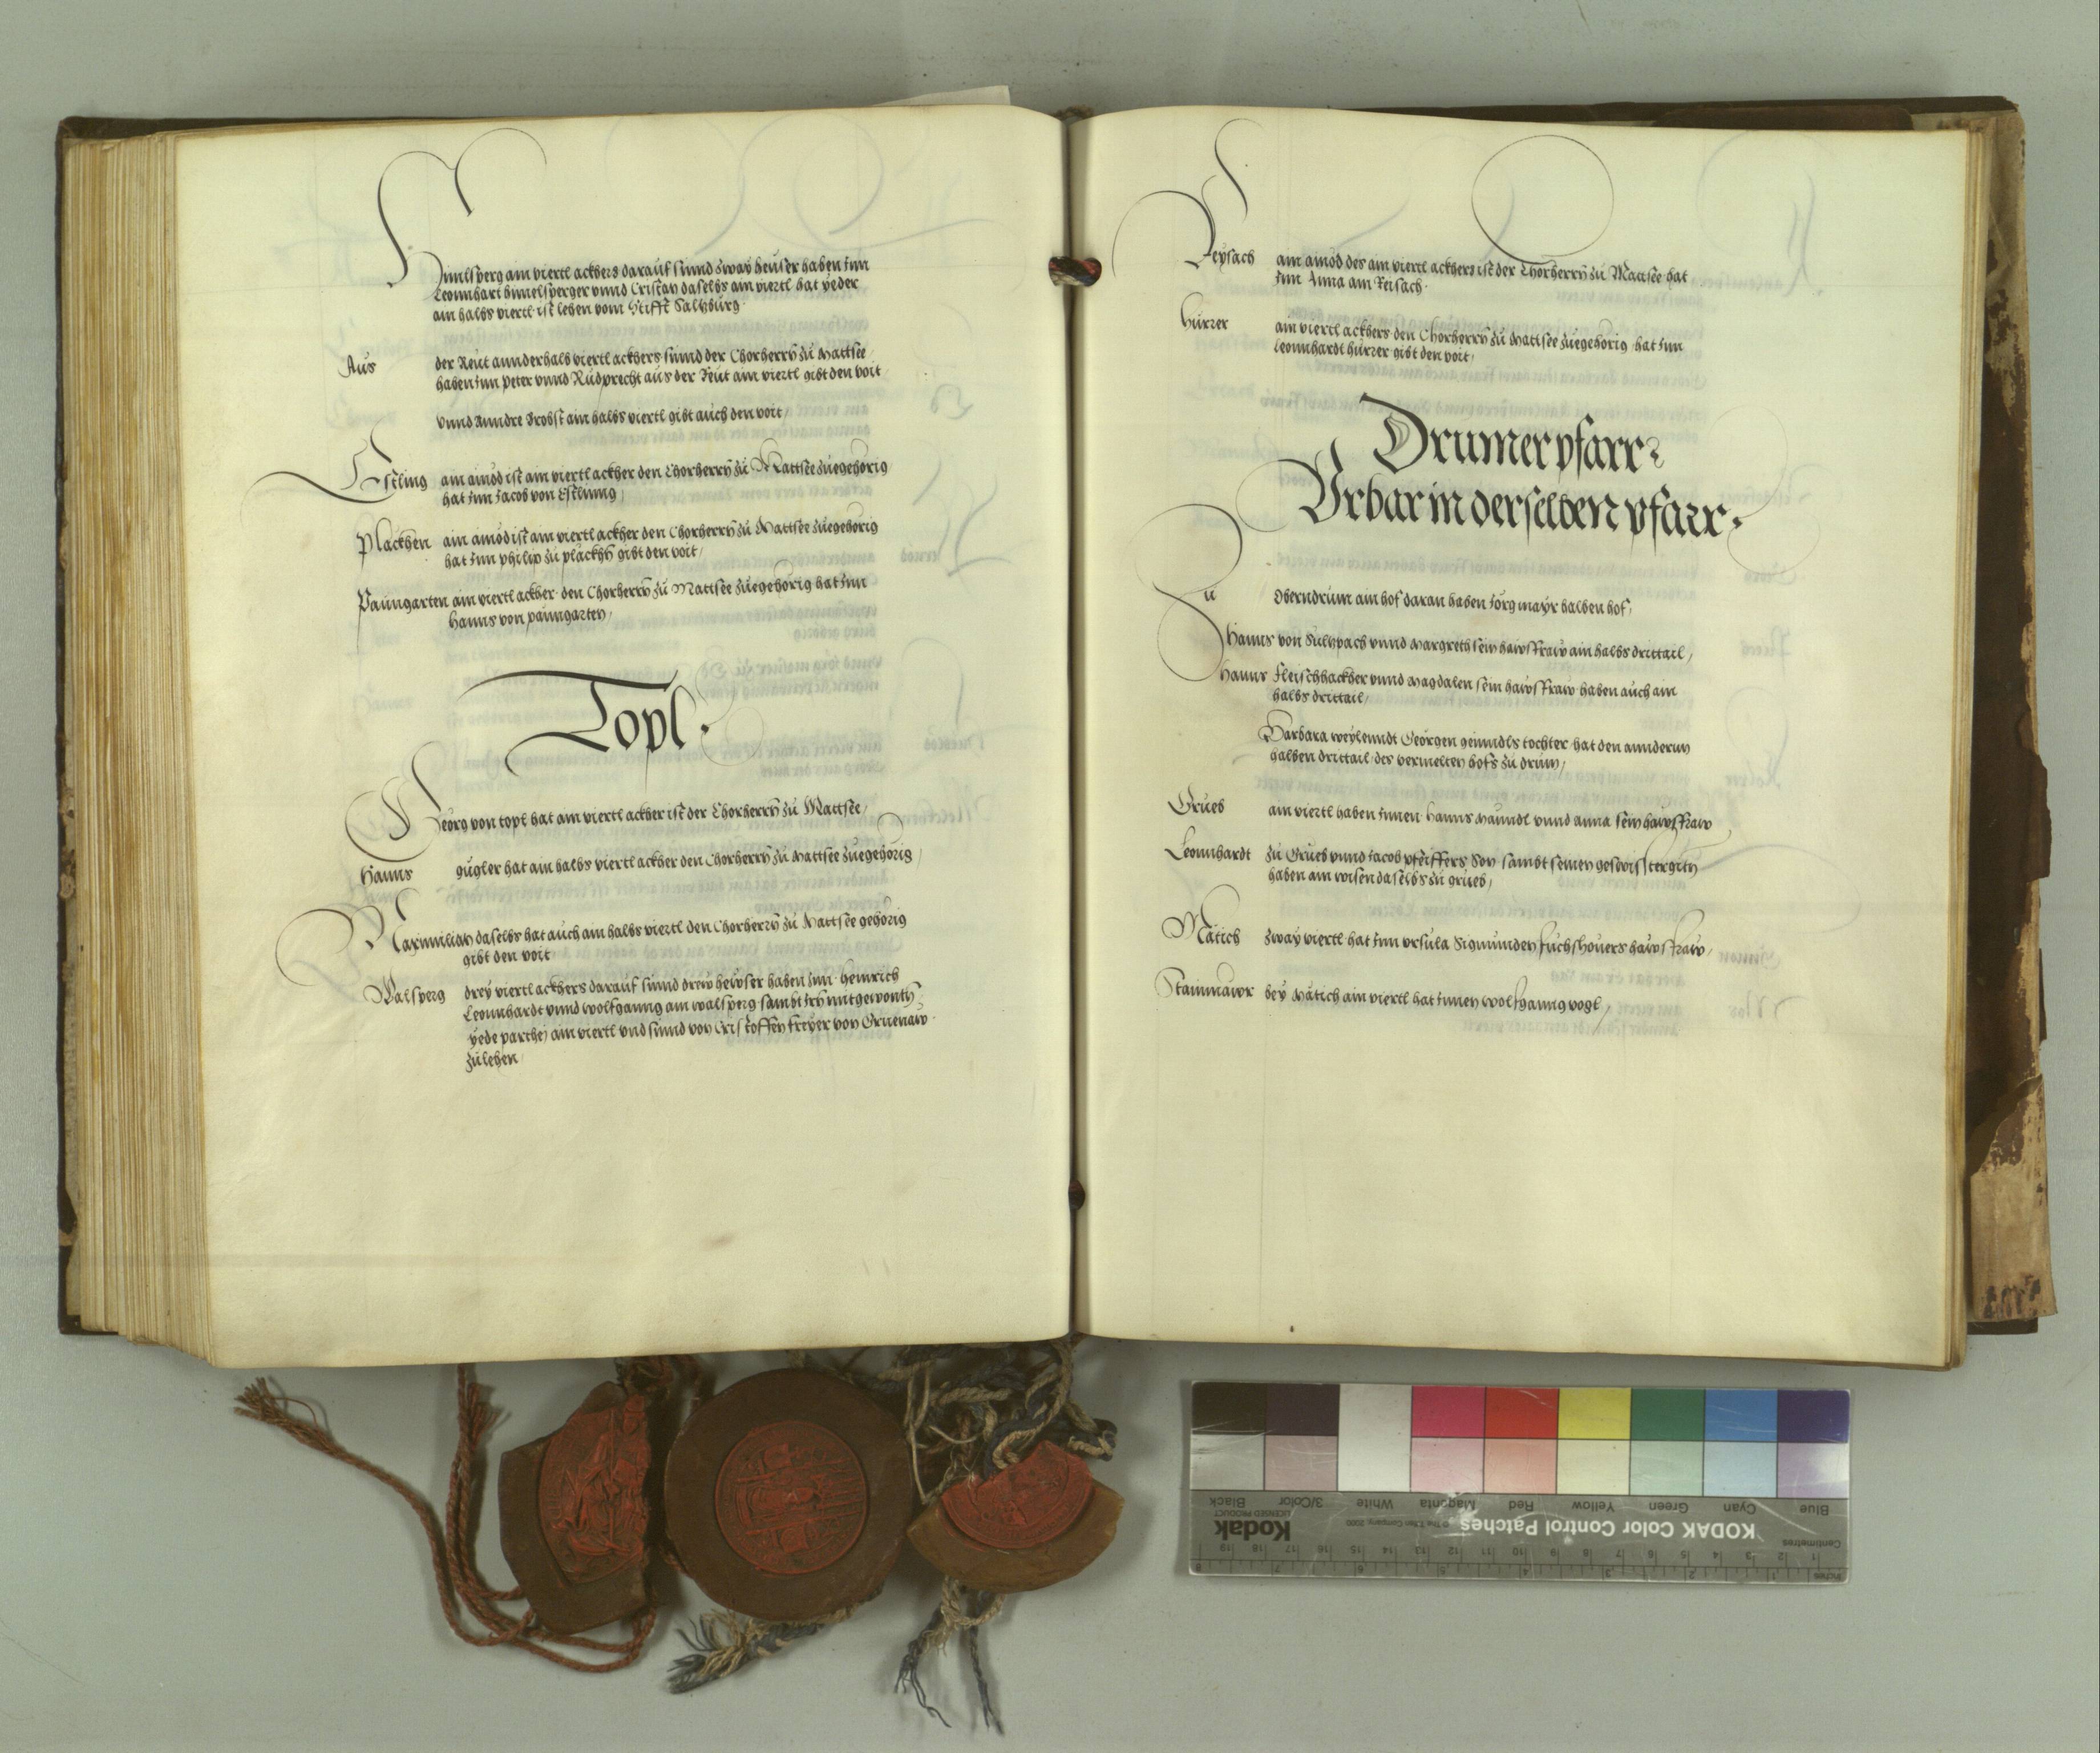 Himlsperg ain viertl ackhers darauf sinnd zway heuser haben Inn
Leonnhart himelsperger vnnd Cristan daselbs ain viertl hat yeder
ain halbs viertl ist lehen vom Stifft Saltzburg
Aus der Reut annderhalb viertl ackhers sinnd der Chorherrn zu Mattsee
haben Inn Peter vnnd Rudprecht aus der Reut ain viertl gibt den voit
vnnd Anndre Probst ain halbs viertl gibt auch den voit
Estling ain ainod ist ain viertl ackher den Chorherrn zu Mattsee zuegehorig
hat Inn Jacob von Estlinng
Plackhen ain ainod ist ain viertl ackher den Chorherrn zu Mattsee zuegehorig
hat Inn philip zu plackhn gibt den voit
Paumgarten ain viertl ackher den Chorherrn zu Mattsee zuegehorig hat Inn
hanns von paumgarten
Topl
Georg von topl hat ain viertl ackher ist der Chorherrn zu Mattsee
Hanns gugler hat ain halbs viertl ackher den Chorherrn zu Mattsee zuegehorig
Maximilian daselbs hat auch ain halbs viertl den Chorherrn zu Mattsee gehorig
gibt den voit
Walsperg drey viertl ackhers darauf sinnd drew hewser haben Inn heinrich
Leonnhardt vnnd wolfganng am walsperg sambt Irn mitgewontn
yede parthej ain viertl vnd sinnd von Cristoffen freyer von Gruenaw
zulehen
Reysach ain ainod des ain viertl ackhers ist der Chorherrn zu Mattsee hat
Inn Anna am Reisach
Hurrer ain viertl ackhers den Chorherrn zu Mattsee zuegehorig hat Inn
Leonnhardt hurrer gibt den voit
Drumer pfarr
Vrbar in derselben pfarr
Zu Oberndrum ain hof daran haben Jorg mayr halben hof
Hanns von Sultzpach vnnd Margreth sein hawsfraw ain halbs drittail
Hanns Fleischhackher vnnd Magdalen sein hawsfraw haben auch ain
halbs drittail
Barbara weylenndt Georgen gmundls tochter hat den anndern
halben drittail des vermelten hofs zu drum
Grueb ain viertl haben Innen Hanns Maundl vnnd anna sein hawsfraw
Leonnhardt zu Grueb vnnd Jacob pfeiffers Son sambt seinen geswistergitn
haben ain wisen daselbs zu grueb
Matich zway viertl hat Inn vrsula Sigmunden fuchshouers hawsfraw
Stainmawr bey Matich ain viertl hat Innen wolfganng vogl
KODAK Color Control Patches
Kodak
LICENSED PRODUCT
© The Tiffen Company, 2000
Blue Cyan Green Yellow Red Magenta White 3/Color Black
Centimetres
1 2 3 4 5 6 7 8 9 10 11 12 13 14 15 16 17 18 19
Inches